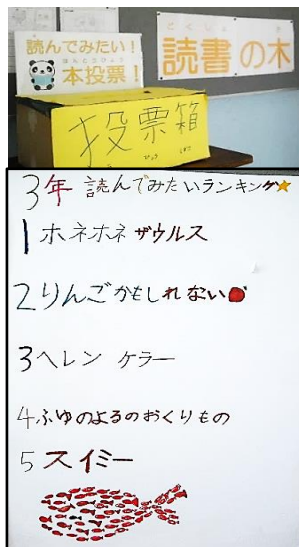 読んでみたい！
ほんとうひょう
本投票！
どくしょ き
読書の木
投票箱
ひょう ばこ
3年 読んでみたいランキング
1 ホネホネザウルス
2 りんごかもしれない
3 ヘレン ケラー
4 ふゆのよるのおくりもの
5 スイミー